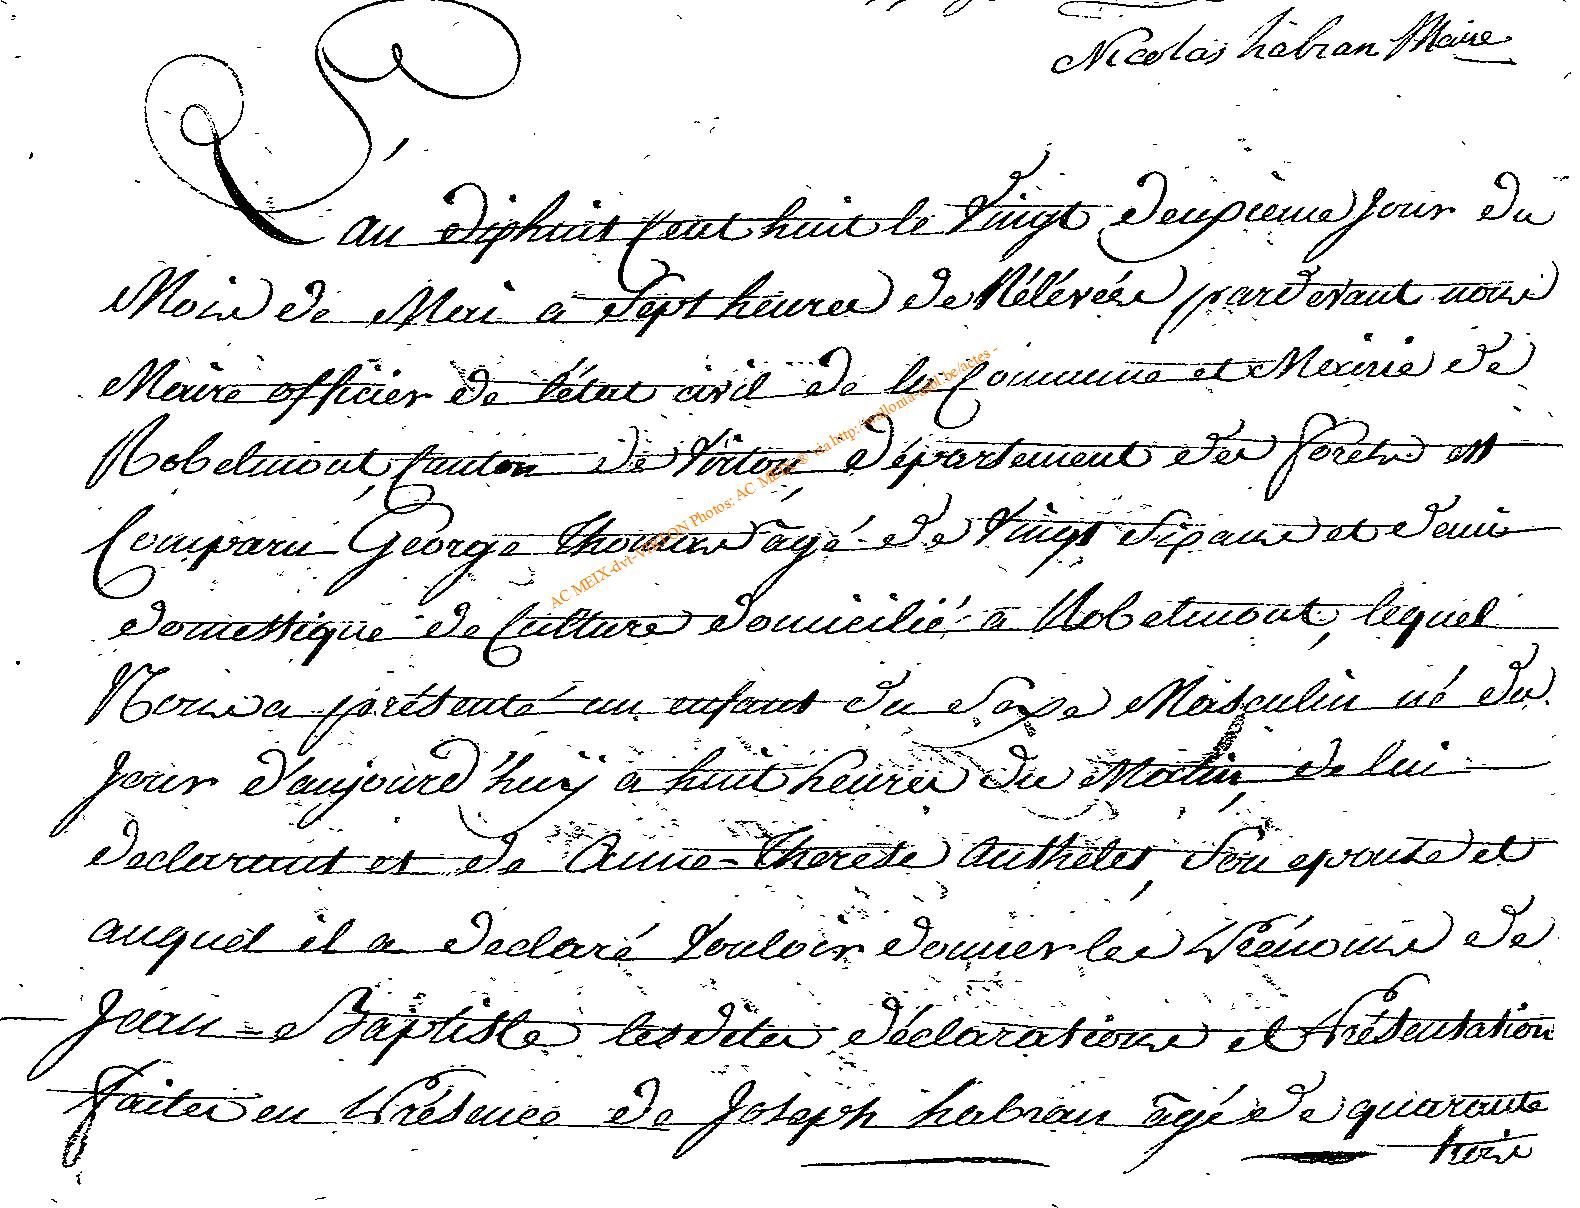 Nicolas habran Maire
L'an dixhuit Cent huit le Vingt deuxieme Jour du
Mois de Mai a Sept heures de Rélévée pardevant nous
Maire officier de l'état civil de la Commune et Mairie de
Robelmont, Canton de Virton, département des forêts est
Comparu George Thomas âgé de Vingt Six ans et demi
domestique de Culture domicilié à Robelmont, lequel
Nous a présenté un enfant du Sexe Masculin né du
Jour d'aujourd'huÿ a huit heures du Matin, de lui
declarant et de Anne-Therese Anthelet, Son epouse et
auquel il a declaré Vouloir donner les Prénoms de
Jean-Baptiste lesdites déclarations et Présentation
faites en Présence de Joseph habran âgé de quarante
trois
AC MEIX-dvt-VIRTON Photos: AC MEIX